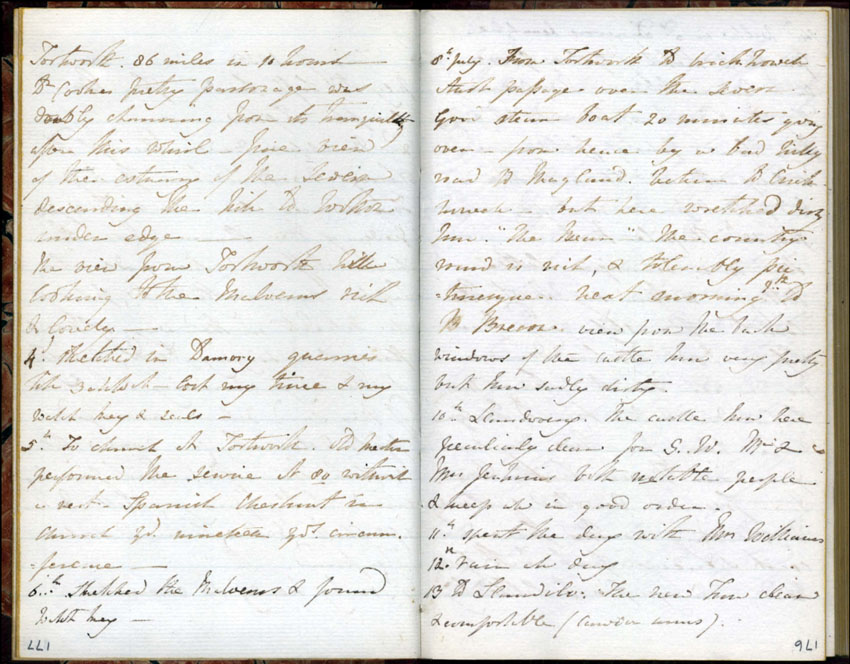 Tortworth. 86 miles in 10 hours
Dr Cooke pretty parsonage was
doubly charming from its tranquillity
after this whirl - fine view
of the estuary of the Severn
descending the hill to Wotton
under edge
The view from Tortworth hill
looking to the Malverns rich
& lovely
4th Sketched in Damory quarries
till - lost my time & my
watch key & seals -
5th To church at Tortworth. Old
performed the service at 80 without
a rest - Spanish Chestnut in
church yd. nineteen yds. circum-
-ference
6th Sketched the Malverns & found
watch key -
177
8th July. From Tortworth to Crickhowell
Aust passage over the Severn
Govt steam boat 20 minutes going
over - from hence by a bad hilly
road to Ragland. better to Crick-
howell - but here wretched dirty
Inn. "The Bear" The country
round is rich, & tolerably pic-
-turesque. next morning 9th
to Brecon. view from the back
windows of the castle Inn very pretty
but Inn sadly dirty.
10th Llandovery. The castle Inn here
peculiarly clean for S. W. Mr &
Mrs Jenkins both notable people
& keep all in good order.
11th spent the day with Mrs Williams
12th rain all day
13 to Llandilo. The new Inn clean
& comfortable (Cawdor arms).
176